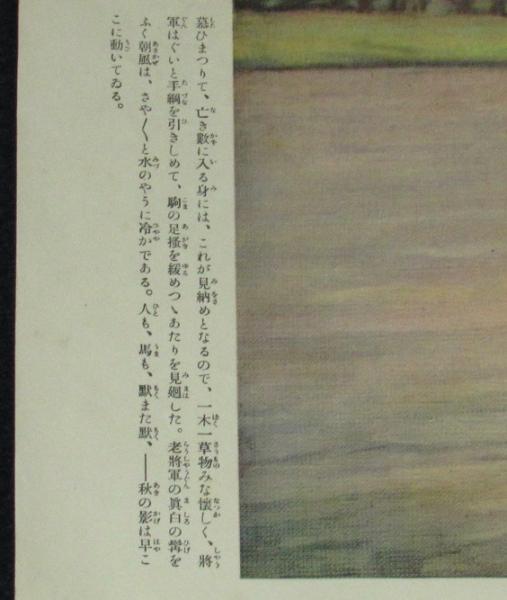 慕ひまつりて、亡き數に入る身には、これが見納めとなるので、一木一草物みな懷しく、將
軍はぐいと手綱を引きしめて、駒の足搔を緩めつゝあたりを見廻した。老將軍の眞白の髯を
ふく朝風は、さや〳〵と水のやうに冷かである。人も、馬も、默また默、――秋の影は早こ
こに動いてゐる。